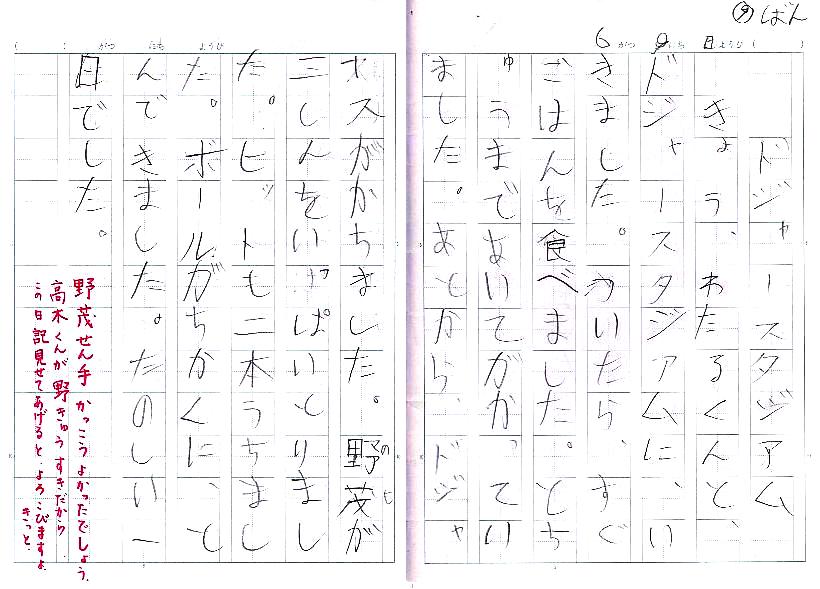 ⑨ばん
6がつ9にち日ようび( )
ドジャースタジアム
きょう、わたるくんと、
ドジャースタジアムに、い
きました。ついたら、すぐ
ごはんを食べました。とち
ゅうまであいてがかってい
ました。あとから、ドジャ
( ) がつ にち ようび
ースがかちました。野茂が
のも
三しんをいっぱいとりまし
た。ヒットも二本うちまし
た。ボールがちかくに、と
んできました。たのしい一
日でした。
野茂せん手かっこうよかったでしょう。
高木くんが野きゅうすきだから
この日記見せてあげると、よろこびますよ、
きっと。